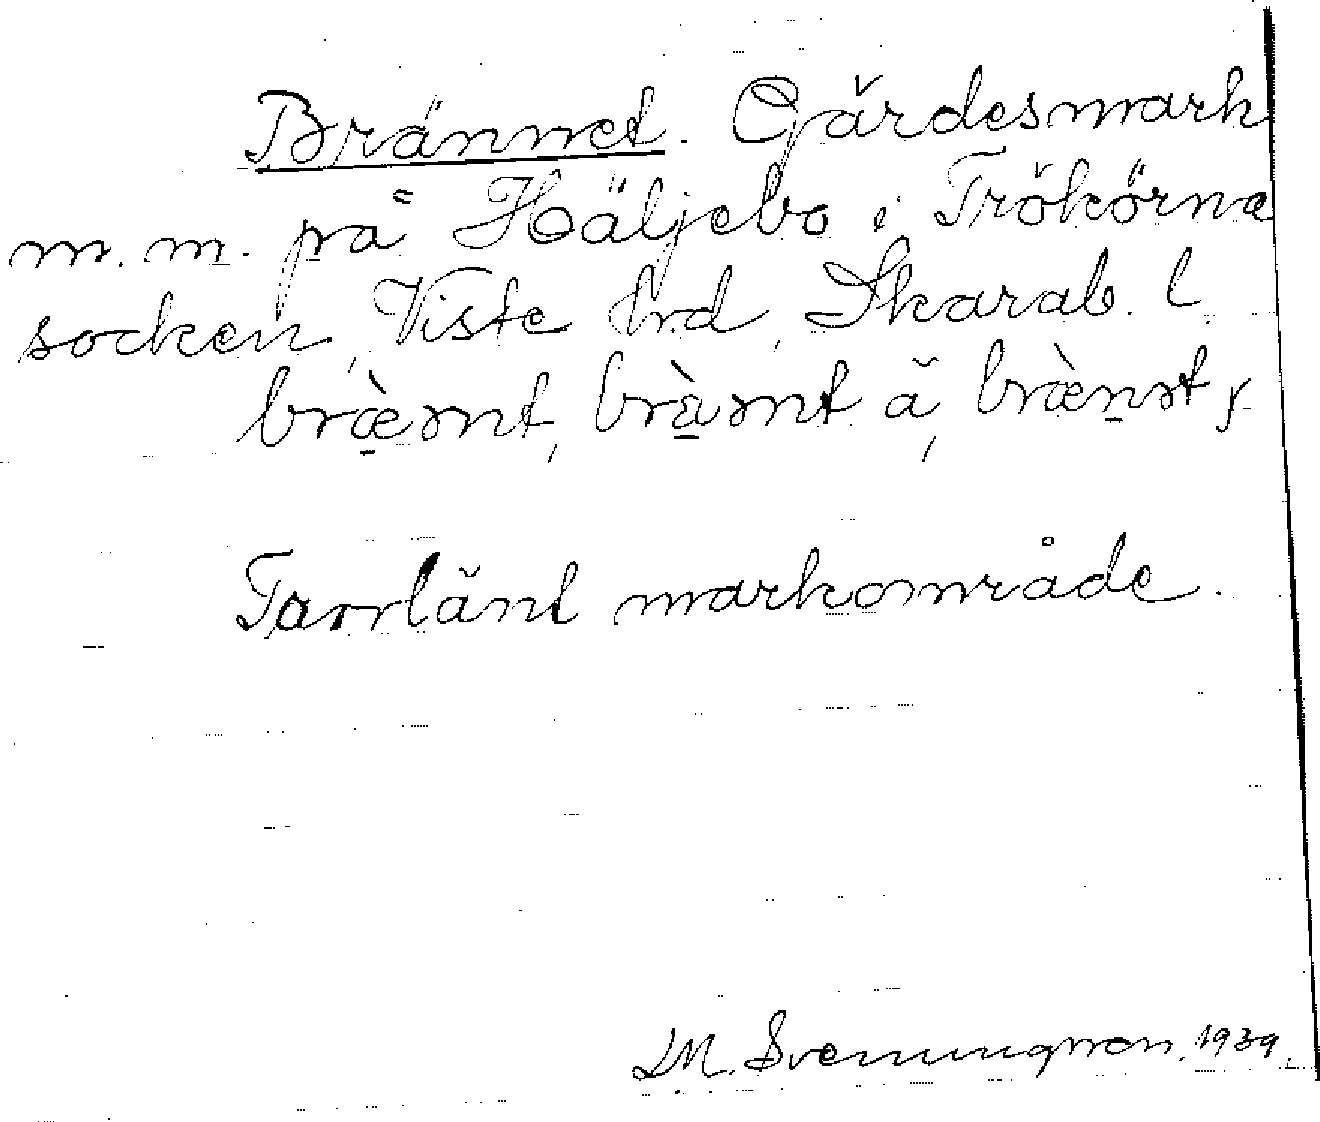 Brännet. Gärdesmark
m. m. på Häljebo i Trökörna
socken, Viste hrd, Skarab. l.
bræ̀nt, brä̀nt å, bræ̀nət,
Torrlänt markområde.
M. Svenungsson. 1939.